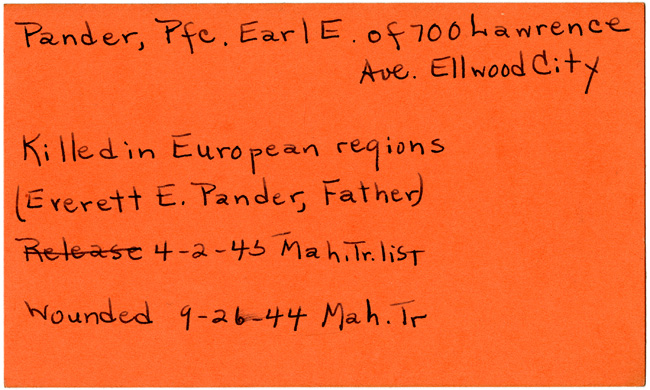 Pander, Pfc. Earl E. of 700 Lawrence
Ave. Ellwood City
Killed in European regions
(Everett E. Pander, Father)
Release 4-2-45 Mah. Tr. list
Wounded 9-26-44 Mah. Tr